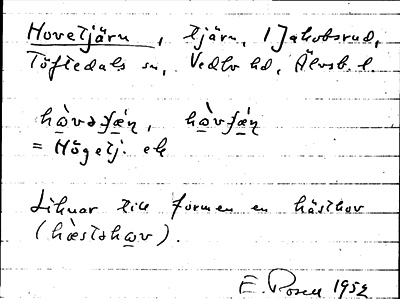 Hovetjärn, tjärn, i Jakobsrud,
Töftedals sn, Vedbo hd, Älvsb. l.
= Högetj. ek
Liknar till formen en hästhov
E. Rosen 1952